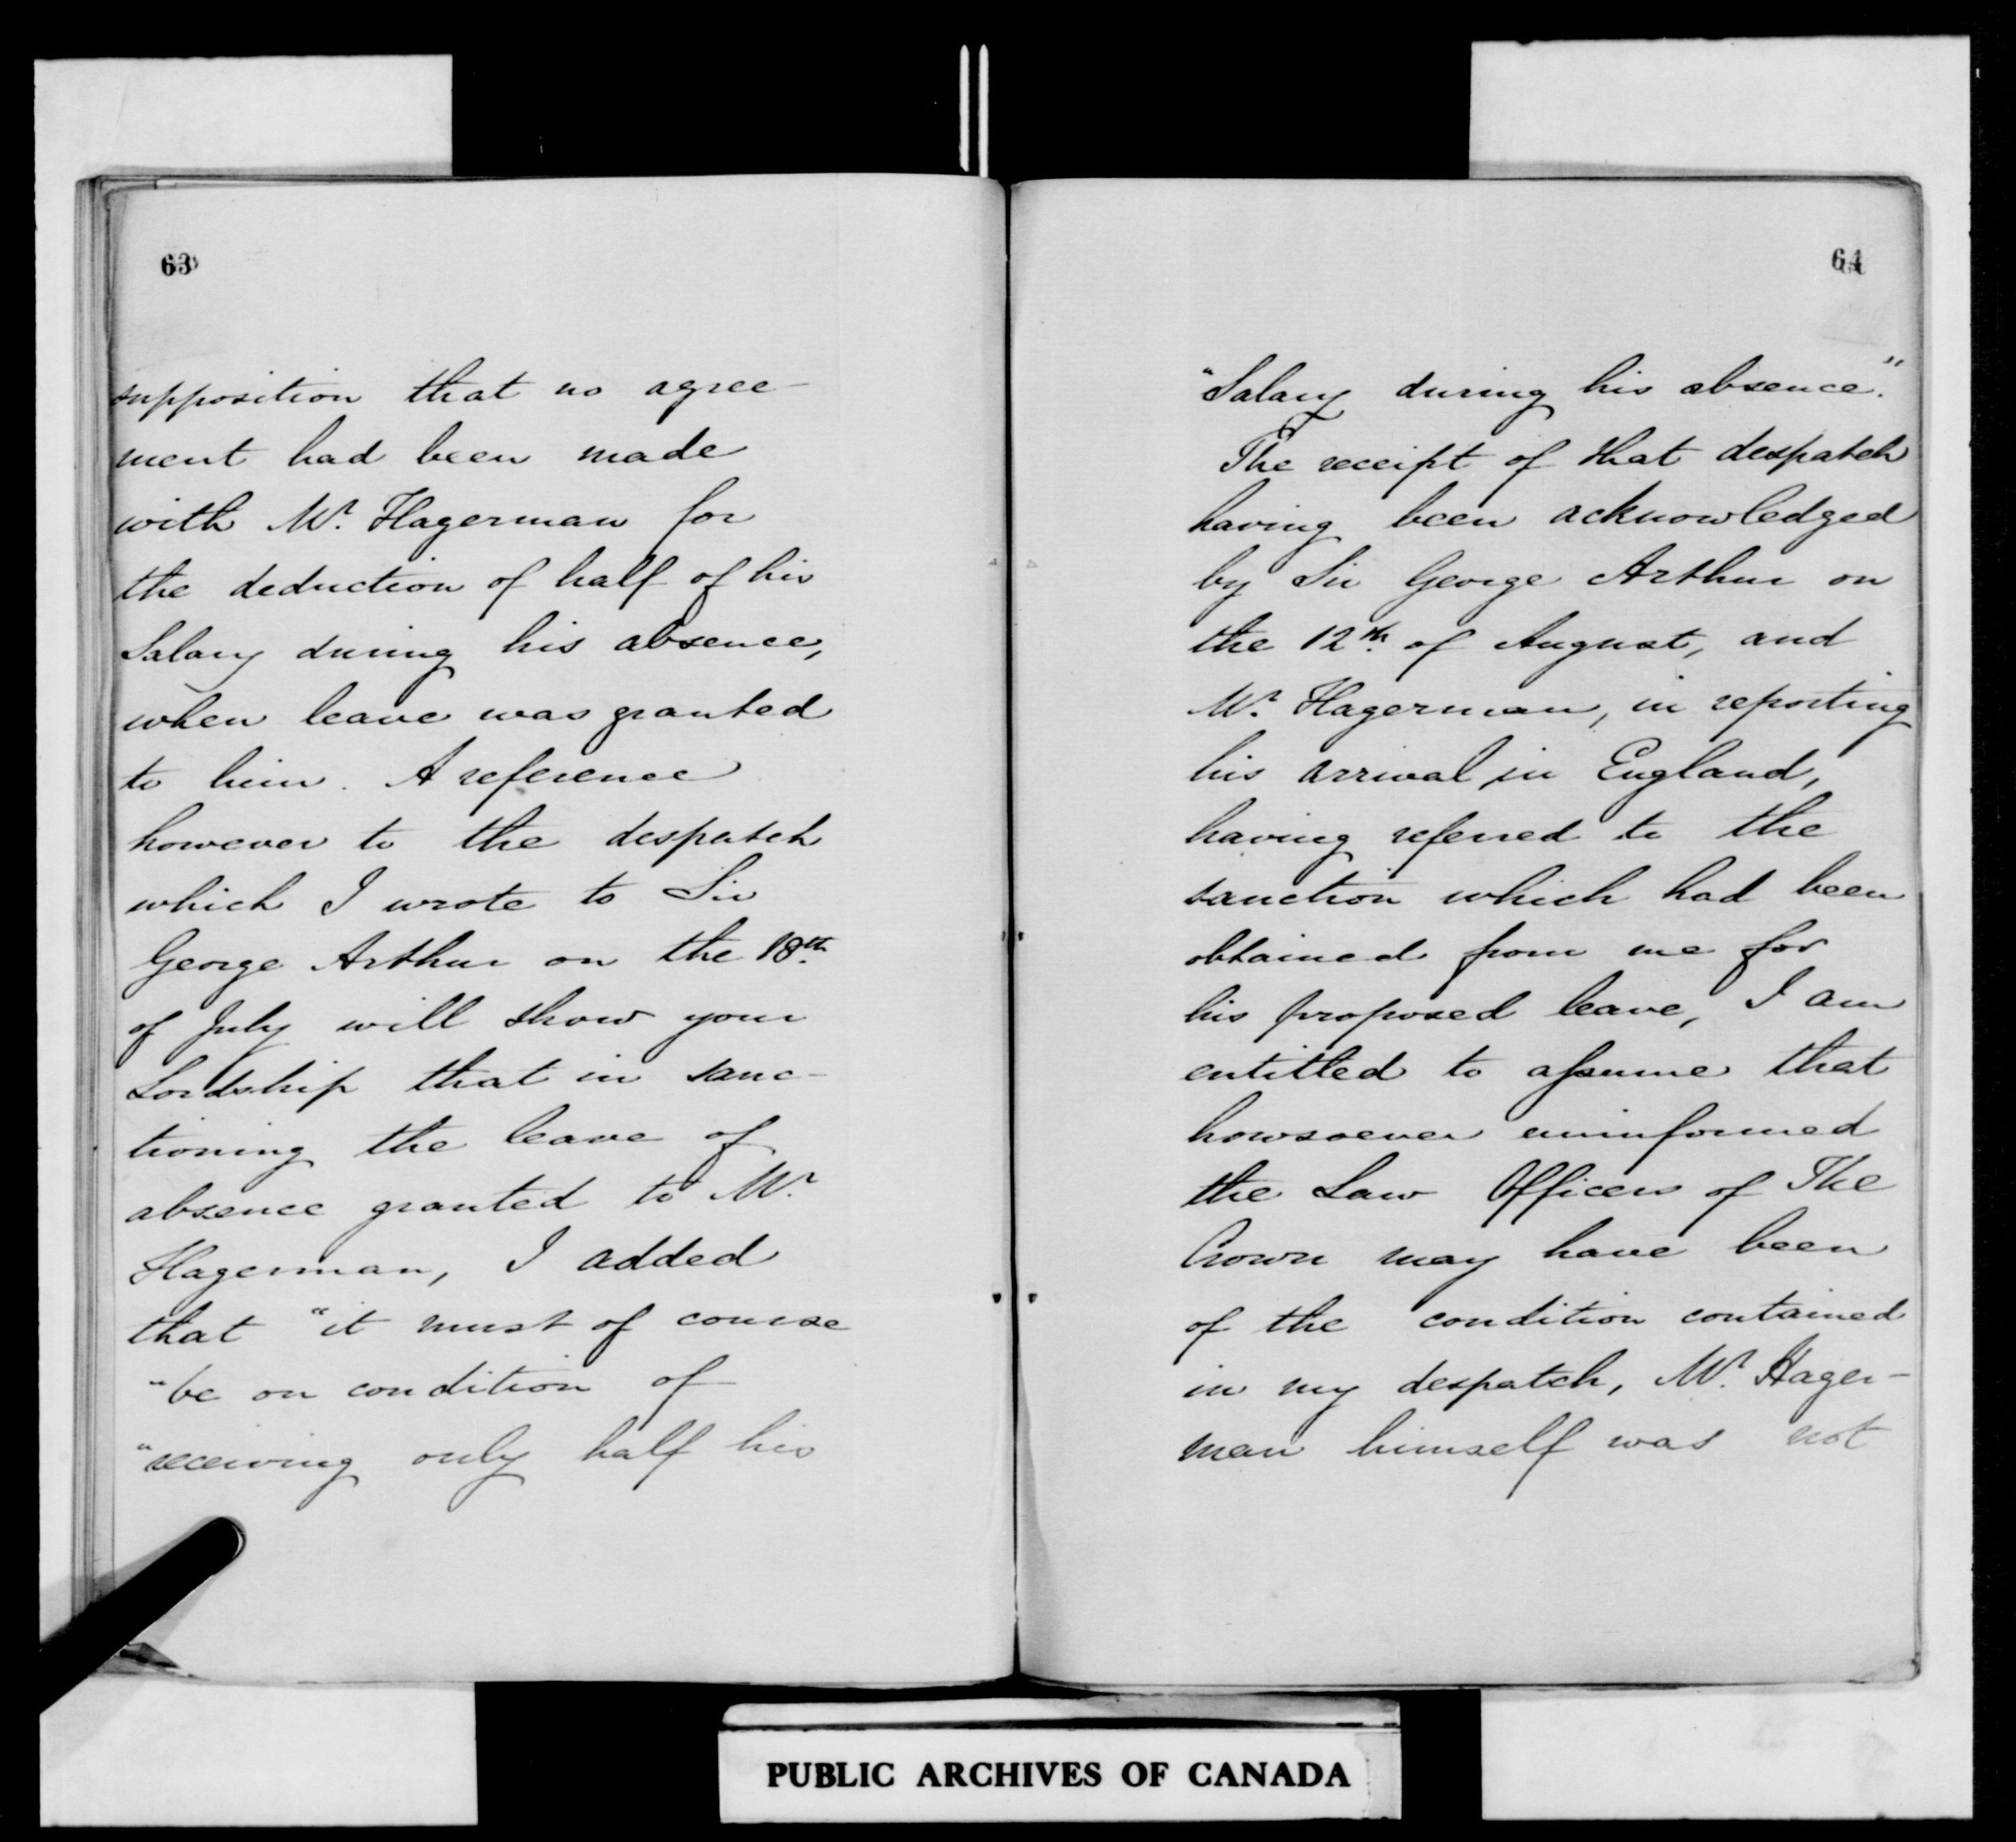 63
supposition that no agree-
ment had been made
with Mr. Hagerman for
the deduction of half of his
Salary during his absence,
when leave was granted
to him. A reference
however to the despatch
which I wrote to Sir
George Arthur on the 18th.
of July will show your
Lordship that in sanc-
tioning the leave of
absence granted to Mr.
Hagerman, I added
that "it must of course
"be on condition of
"receiving only half his
64
"Salary during his absence."
The receipt of that despatch
having been acknowledged
by Sir George Arthur on
the 12th. of August, and
Mr. Hagerman, in reporting
his arrival in England,
having referred to the
sanction which had been
obtained from me for
his proposed leave, I am
entitled to assume that
howsoever uninformed
the Law Officers of The
Crown may have been
of the condition contained
in my despatch, Mr. Hager-
man himself was not
PUBLIC ARCHIVES OF CANADA